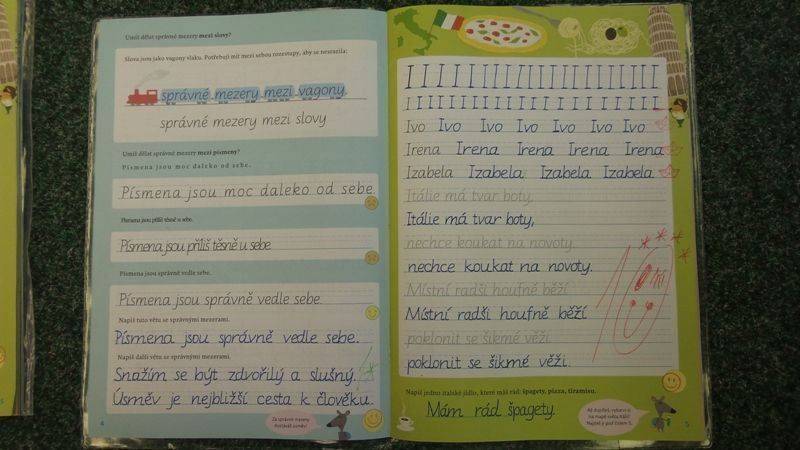 Umíš dělat správné mezery mezi slovy?
Slova jsou jako vagony vlaku. Potřebují mít mezi sebou rozestupy, aby se nesrazila:
správné mezery mezi vagony
správné mezery mezi slovy
Umíš dělat správné mezery mezi písmeny?
Písmena jsou moc daleko od sebe.
Písmena jsou moc daleko od sebe.
Písmena jsou příliš těsně u sebe.
Písmena jsou příliš těsně u sebe.
Písmena jsou správně vedle sebe.
Písmena jsou správně vedle sebe.
Napiš tuto větu se správnými mezerami.
Písmena jsou správně vedle sebe.
Napiš další větu se správnými mezerami.
Snažím se být zdvořilý a slušný.
Úsměv je nejbližší cesta k člověku.
Za správné mezery
dostáváš úsměv!
4
I I I I I I I I I I I I I I I I I I I I
I I I I I I I I I I I I I I I I I I I I
Ivo Ivo Ivo Ivo Ivo Ivo Ivo
Irena Irena Irena Irena Irena
Izabela Izabela Izabela Izabela
Itálie má tvar boty,
Itálie má tvar boty,
nechce koukat na novoty.
nechce koukat na novoty.
Místní radši houfně běží
Místní radši houfně běží
poklonit se šikmé věži.
poklonit se šikmé věži.
Napiš jedno italské jídlo, které máš rád: špagety, pizza, tiramisu.
Mám rád špagety.
Až dopíšeš, vybarvi si
na mapě světa Itálii!
Najdeš ji pod číslem 5.
5